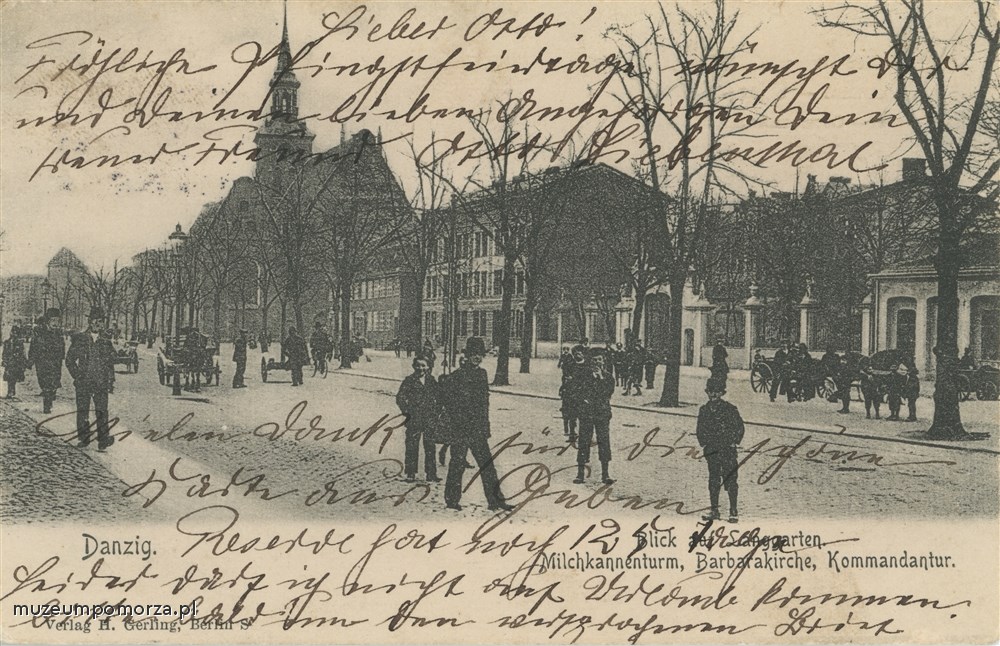 Lieber Otto!
Fröhliche Pfingstfeiertage wünscht Dir
und Deinen lieben Angehörigen Dein
treuer Freund Otto Liebenthal
Vielen Dank für die schöne
Karte aus Guben
Danzig.
Blick auf Langgarten.
Milchkannenturm, Barbarakirche, Kommandantur.
Reserve hat noch 125 Tage
Leider darf ich nicht auf Urlaub kommen.
bald um den versprochenen Brief
muzeumpomorza.pl
Verlag H. Gerling, Berlin S